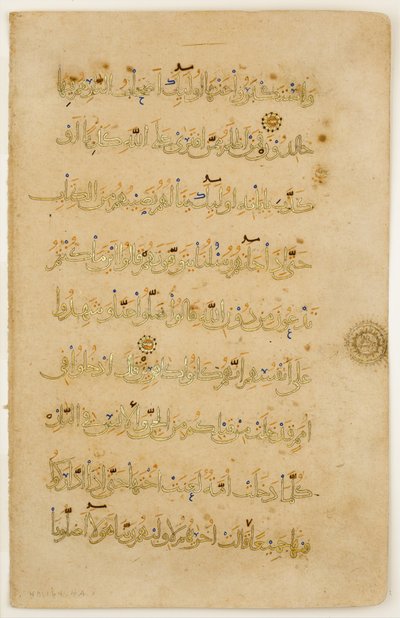 واستكبروا عنها أولئك أصحاب النار هم فيها
خالدون فمن أظلم ممن افترى على الله كذبا أو
كذب بآياته أولئك ينالهم نصيبهم من الكتاب
حتى إذا جاءتهم رسلنا يتوفونهم قالوا أين ما كنتم
تدعون من دون الله قالوا ضلوا عنا وشهدوا
على أنفسهم أنهم كانوا كافرين قال ادخلوا في
أمم قد خلت من قبلكم من الجن والإنس في النار
كلما دخلت أمة لعنت أختها حتى إذا اداركوا
فيها جميعا قالت أخراهم لأولاهم ربنا هؤلاء أضلونا